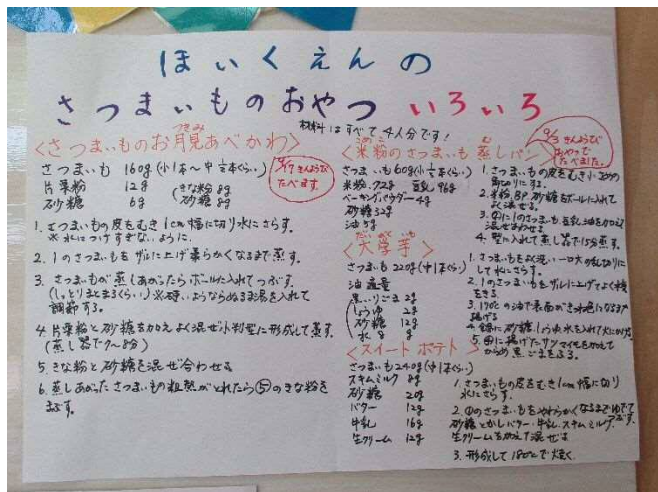 ほいくえんの
さつまいものおやつ いろいろ
材料はすべて4人分です!
<さつまいものお月見あべかわ>
つきみ
さつまいも 160g(小1本〜中1/2本くらい)
片栗粉 12g
砂糖 6g
(きな粉 8g
砂糖 8g)
たべます
1. さつまいもの皮をむき1cm幅に切り水にさらす。
※水につけすぎないように。
2. 1のさつまいもをザルに上げ柔らかくなるまで蒸す。
3. さつまいもが蒸しあがったらボールに入れてつぶす。
(しっとりまとまるくらい)※硬いようならぬるま湯を入れて
調節する。
4. 片栗粉と砂糖を加えよく混ぜ小判型に形成して蒸す。
(蒸し器で7〜8分)
5. きな粉と砂糖を混ぜ合わせる
6. 蒸しあがったさつまいもの粗熱がとれたら⑤のきな粉を
まぶす。
<米粉のさつまいも蒸しパン>
さつまいも 60g(小1/2本くらい)
米粉 72g 豆乳 96g
ベーキングパウダー 4g
砂糖 32g
油 5g
おやつで
たべました。
1. さつまいもの皮をむき小さめの
角切りにする。
2. 米粉、BP、砂糖をボールに入れて
よく混ぜる。
3. ②に1のさつまいも、豆乳、油を加え
混ぜ合わせる
4. 型に入れて蒸し器で15分蒸す。
<大学芋>
だいがくいも
さつまいも 220g(中1本くらい)
油 適量
黒いりごま 2g
しょうゆ 2g
砂糖 12g
水 8g
1. さつまいもをよく洗い一口大の乱切りに
して水にさらす。
2. 1のさつまいもをザルに上げてよく水気
をきる。
3. 170℃の油で表面がきつね色になるまで
揚げる
4. 鍋に砂糖、しょうゆ、水を入れて火にかける。
5. ④に揚げたサツマイモを加えて
からめ黒ごまをふる。
<スイートポテト>
さつまいも 240g(中1本くらい)
スキムミルク 8g
砂糖 20g
バター 12g
牛乳 16g
生クリーム 12g
1. さつまいもの皮をむき1cm幅に切り
水にさらす。
2. ①のさつまいもをやわらかくなるまでゆでて
つぶす。
砂糖、とかしバター、牛乳、スキムミルク、
生クリームを加えて混ぜる
3. 形成して180℃で焼く